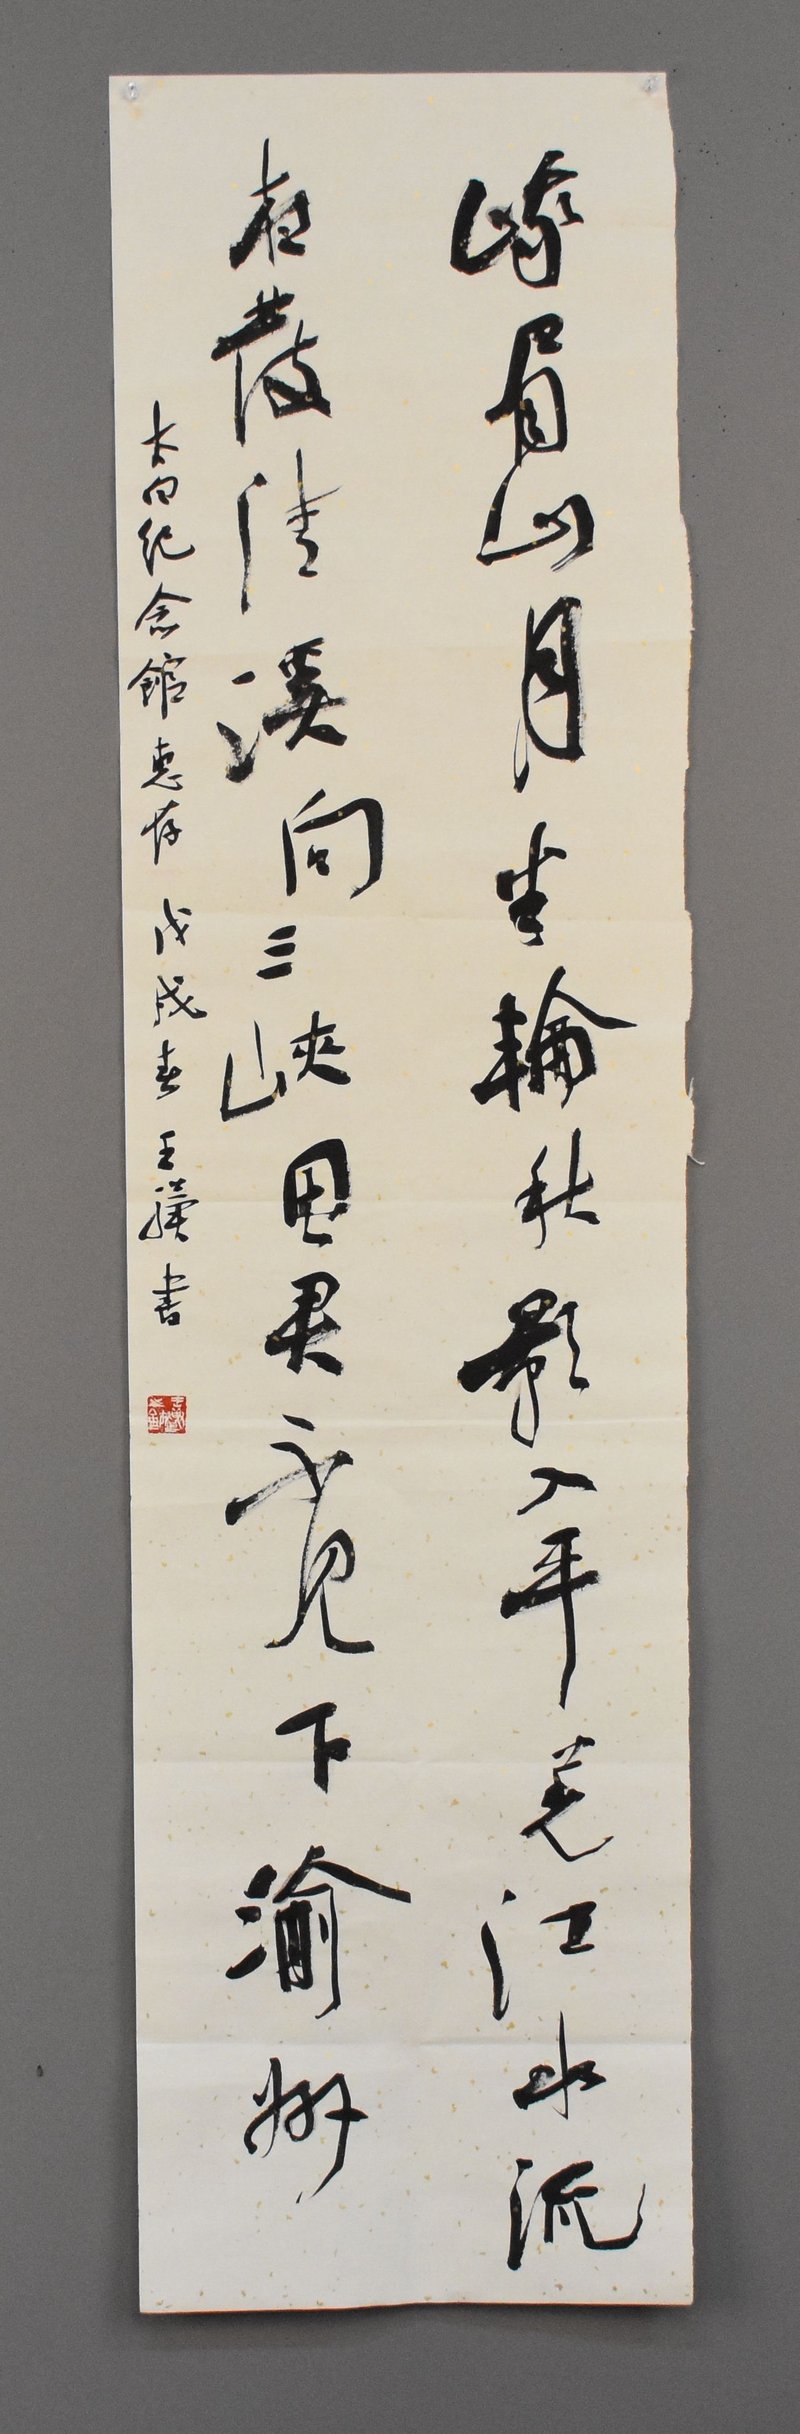 峨眉山月半輪秋影入平羌江水流
夜發清溪向三峽思君不見下渝州
太白纪念館惠存 戊戌春 王 書